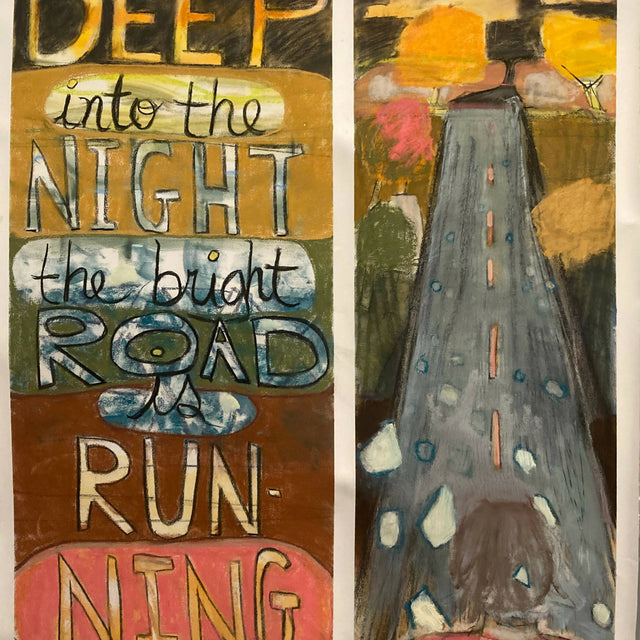 DEEP
into the
NIGHT
the bright
ROAD
is
RUN-
NING